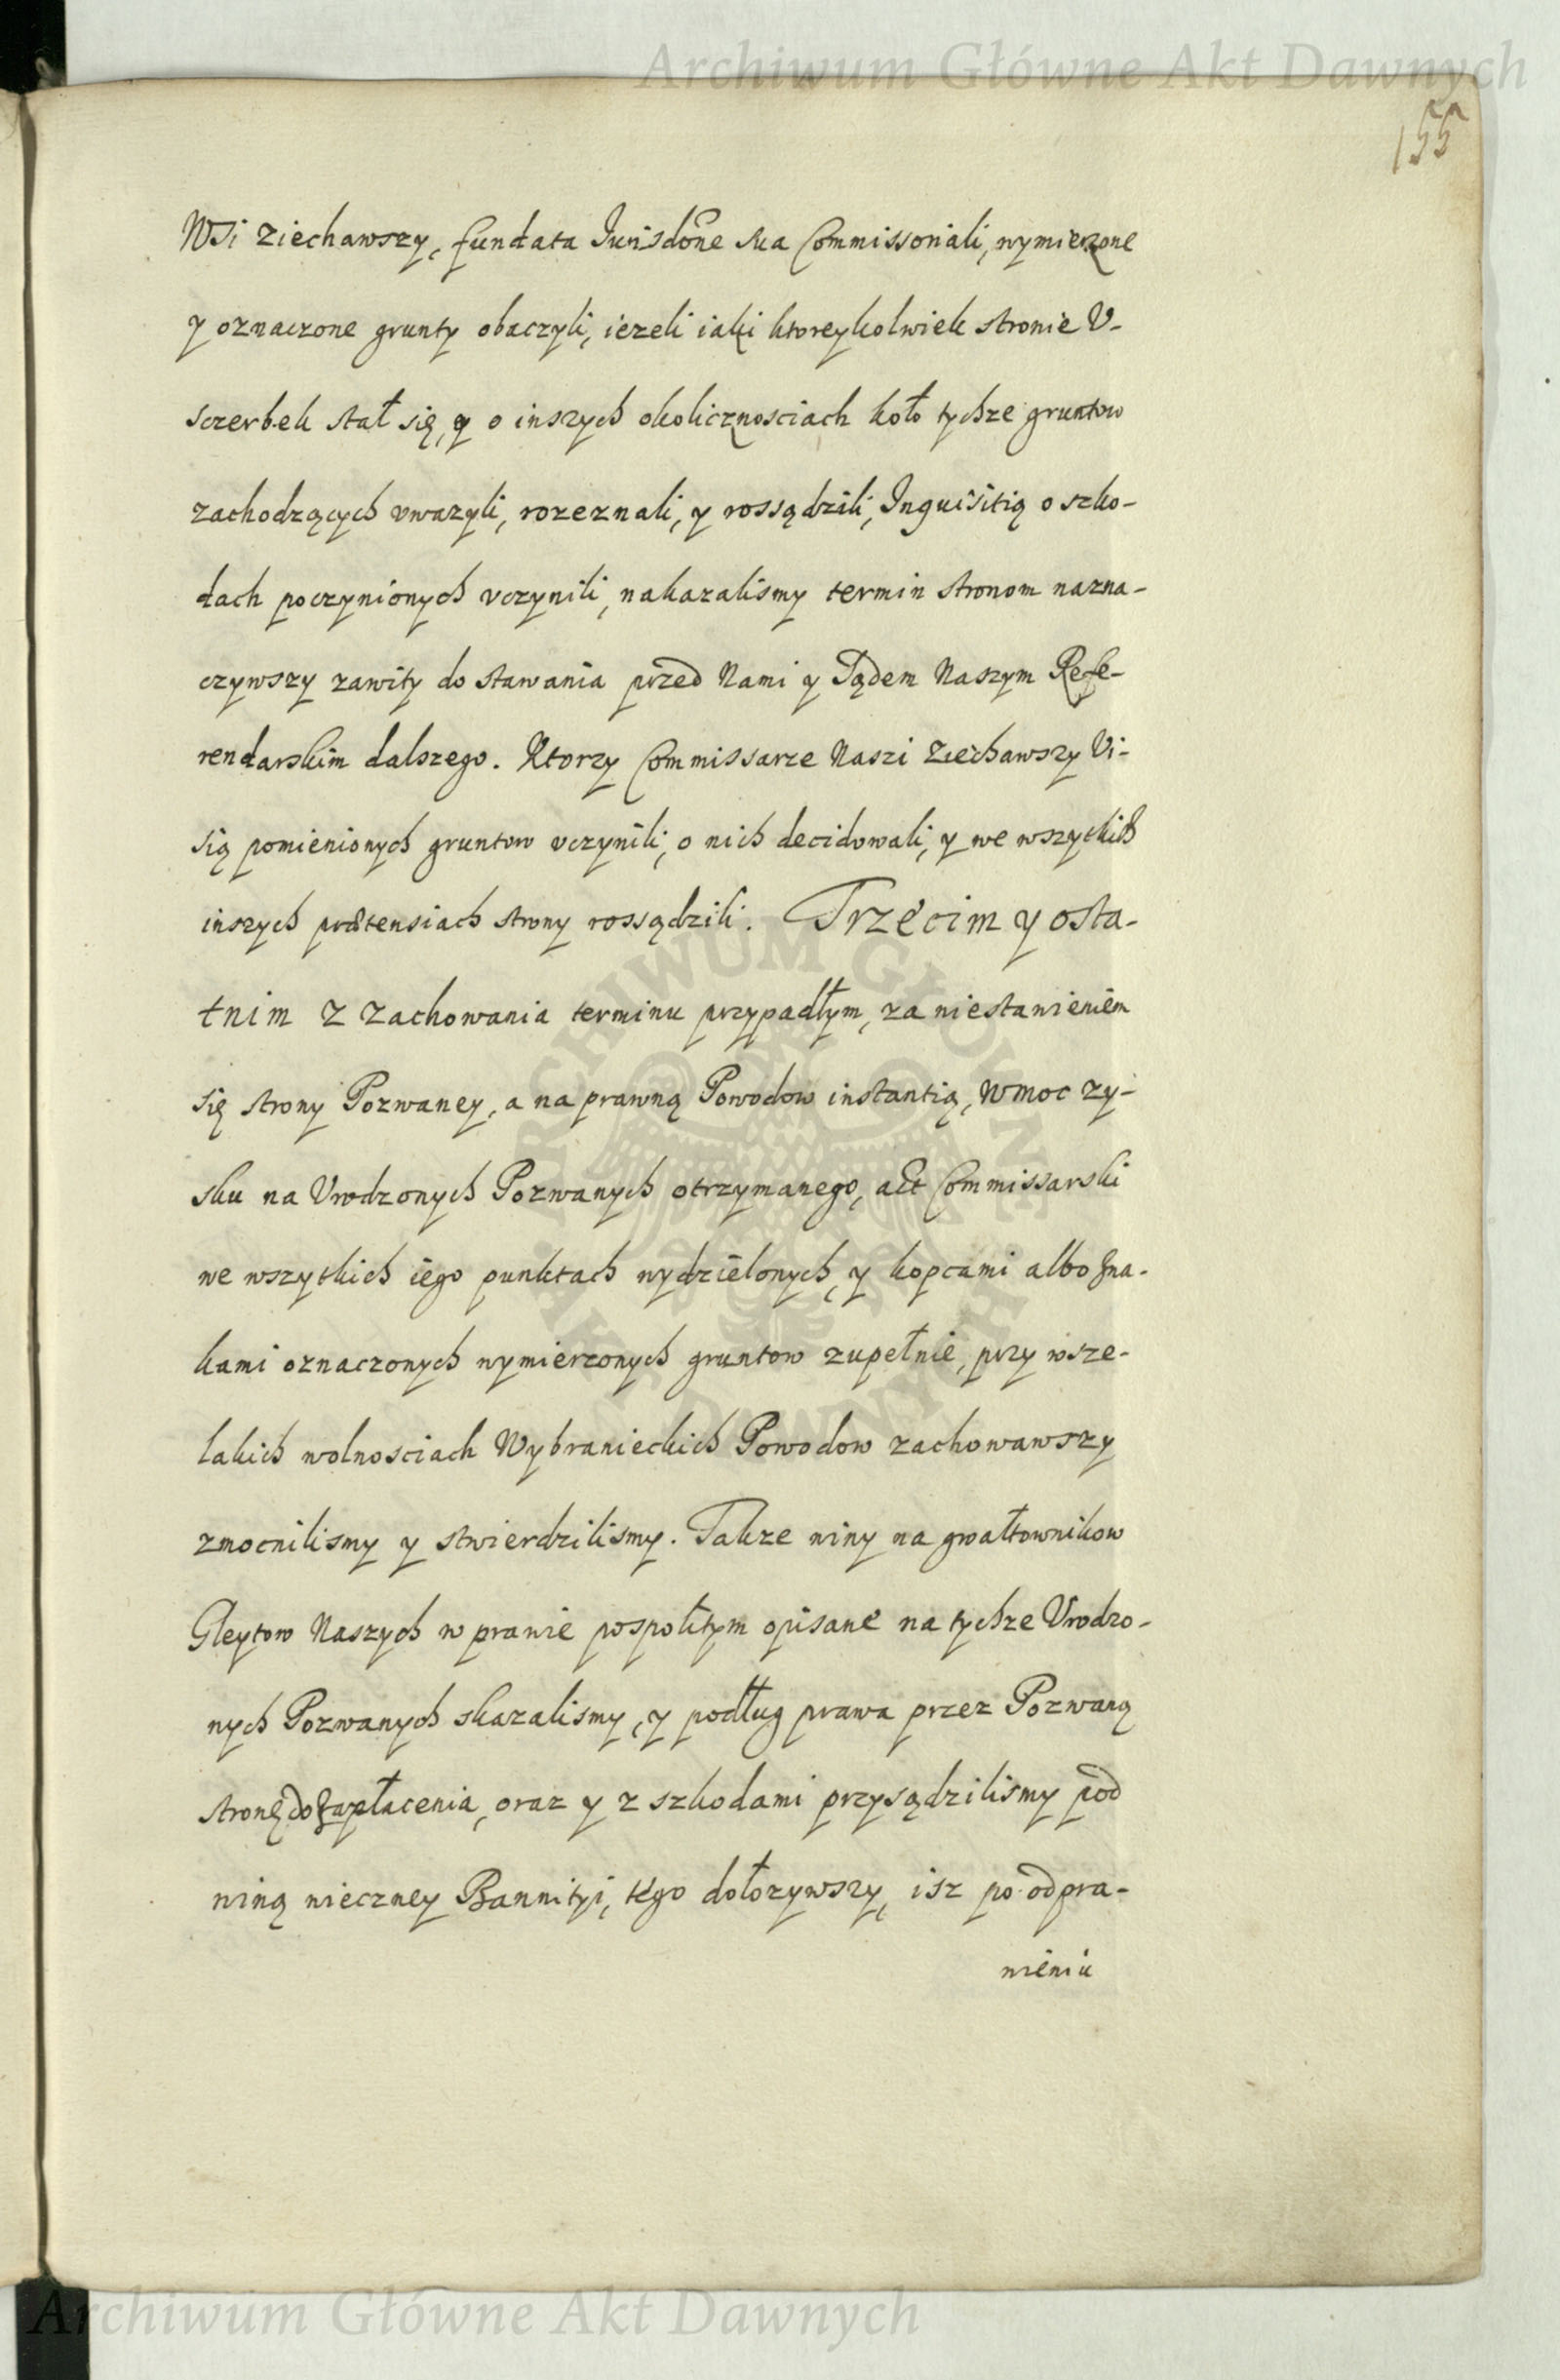 Archiwum Główne Akt Dawnych
155
Wsi ziechawszy, fundata Jurisdōne sua Commissoriali, wymierzone
y oznaczone grunty obaczyli, iezeli iaki ktoreykolwiek stronie V-
sczerbek stał się, y o inszych okolicznosciach koło tychze gruntow
zachodzących vwazyli, rozeznali, y rossądzili, Inquisitią o szko-
dach poczynionych vczynili, nakazalismy termin stronom nazna-
czywszy zawity do stawania przed Nami y Sądem Naszym Refe-
rendarskim dalszego. Ktorzy Commissarze Naszi Ziechawszy Vi-
sią pomienionych gruntow vczynili, o nich decidowali, y we wszytkich
inszych prætensiach strony rossądzili. Trzecim y osta-
tnim z zachowania terminu przypadłym, za niestawieniem
się strony Pozwaney, a na prawną Powodow instantią, w moc zy-
sku na Vrodzonych Pozwanych otrzymanego, akt Commissarski
we wszytkich iego punktach wydzielonych, y kopcami albo zna-
kami oznaczonych wymierzonych gruntow zupełnie, przy wsze-
lakich wolnosciach Wybranieckich Powodow zachowawszy
zmocnilismy y stwierdzilismy. Takze winy na gwałtownikow
Gleytow Naszych w prawie pospolitym opisane na tychze Vrodzo-
nych Pozwanych skazalismy, y podług prawa przez Pozwaną
stronę do zapłacenia, oraz y z szkodami przysądzilismy pod
winą wieczney Bannityi, tego dołozywszy, isz po odpra-
wieniu
ARCHIWUM GŁÓWNE
AKT DAWNYCH
Archiwum Główne Akt Dawnych